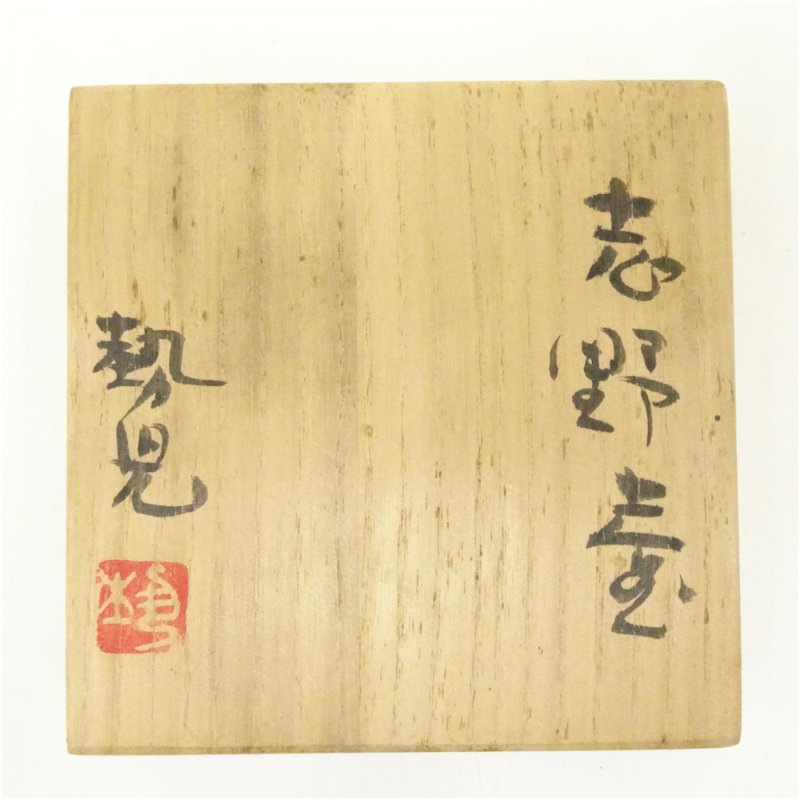 志野壺
勢児